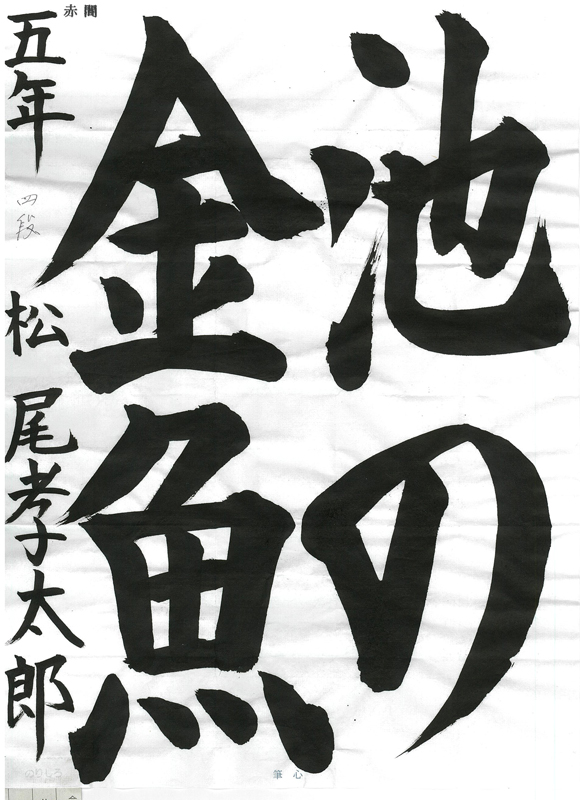 池の
金魚
赤間
五年 四段 松尾孝太郎
筆心
のりしろ